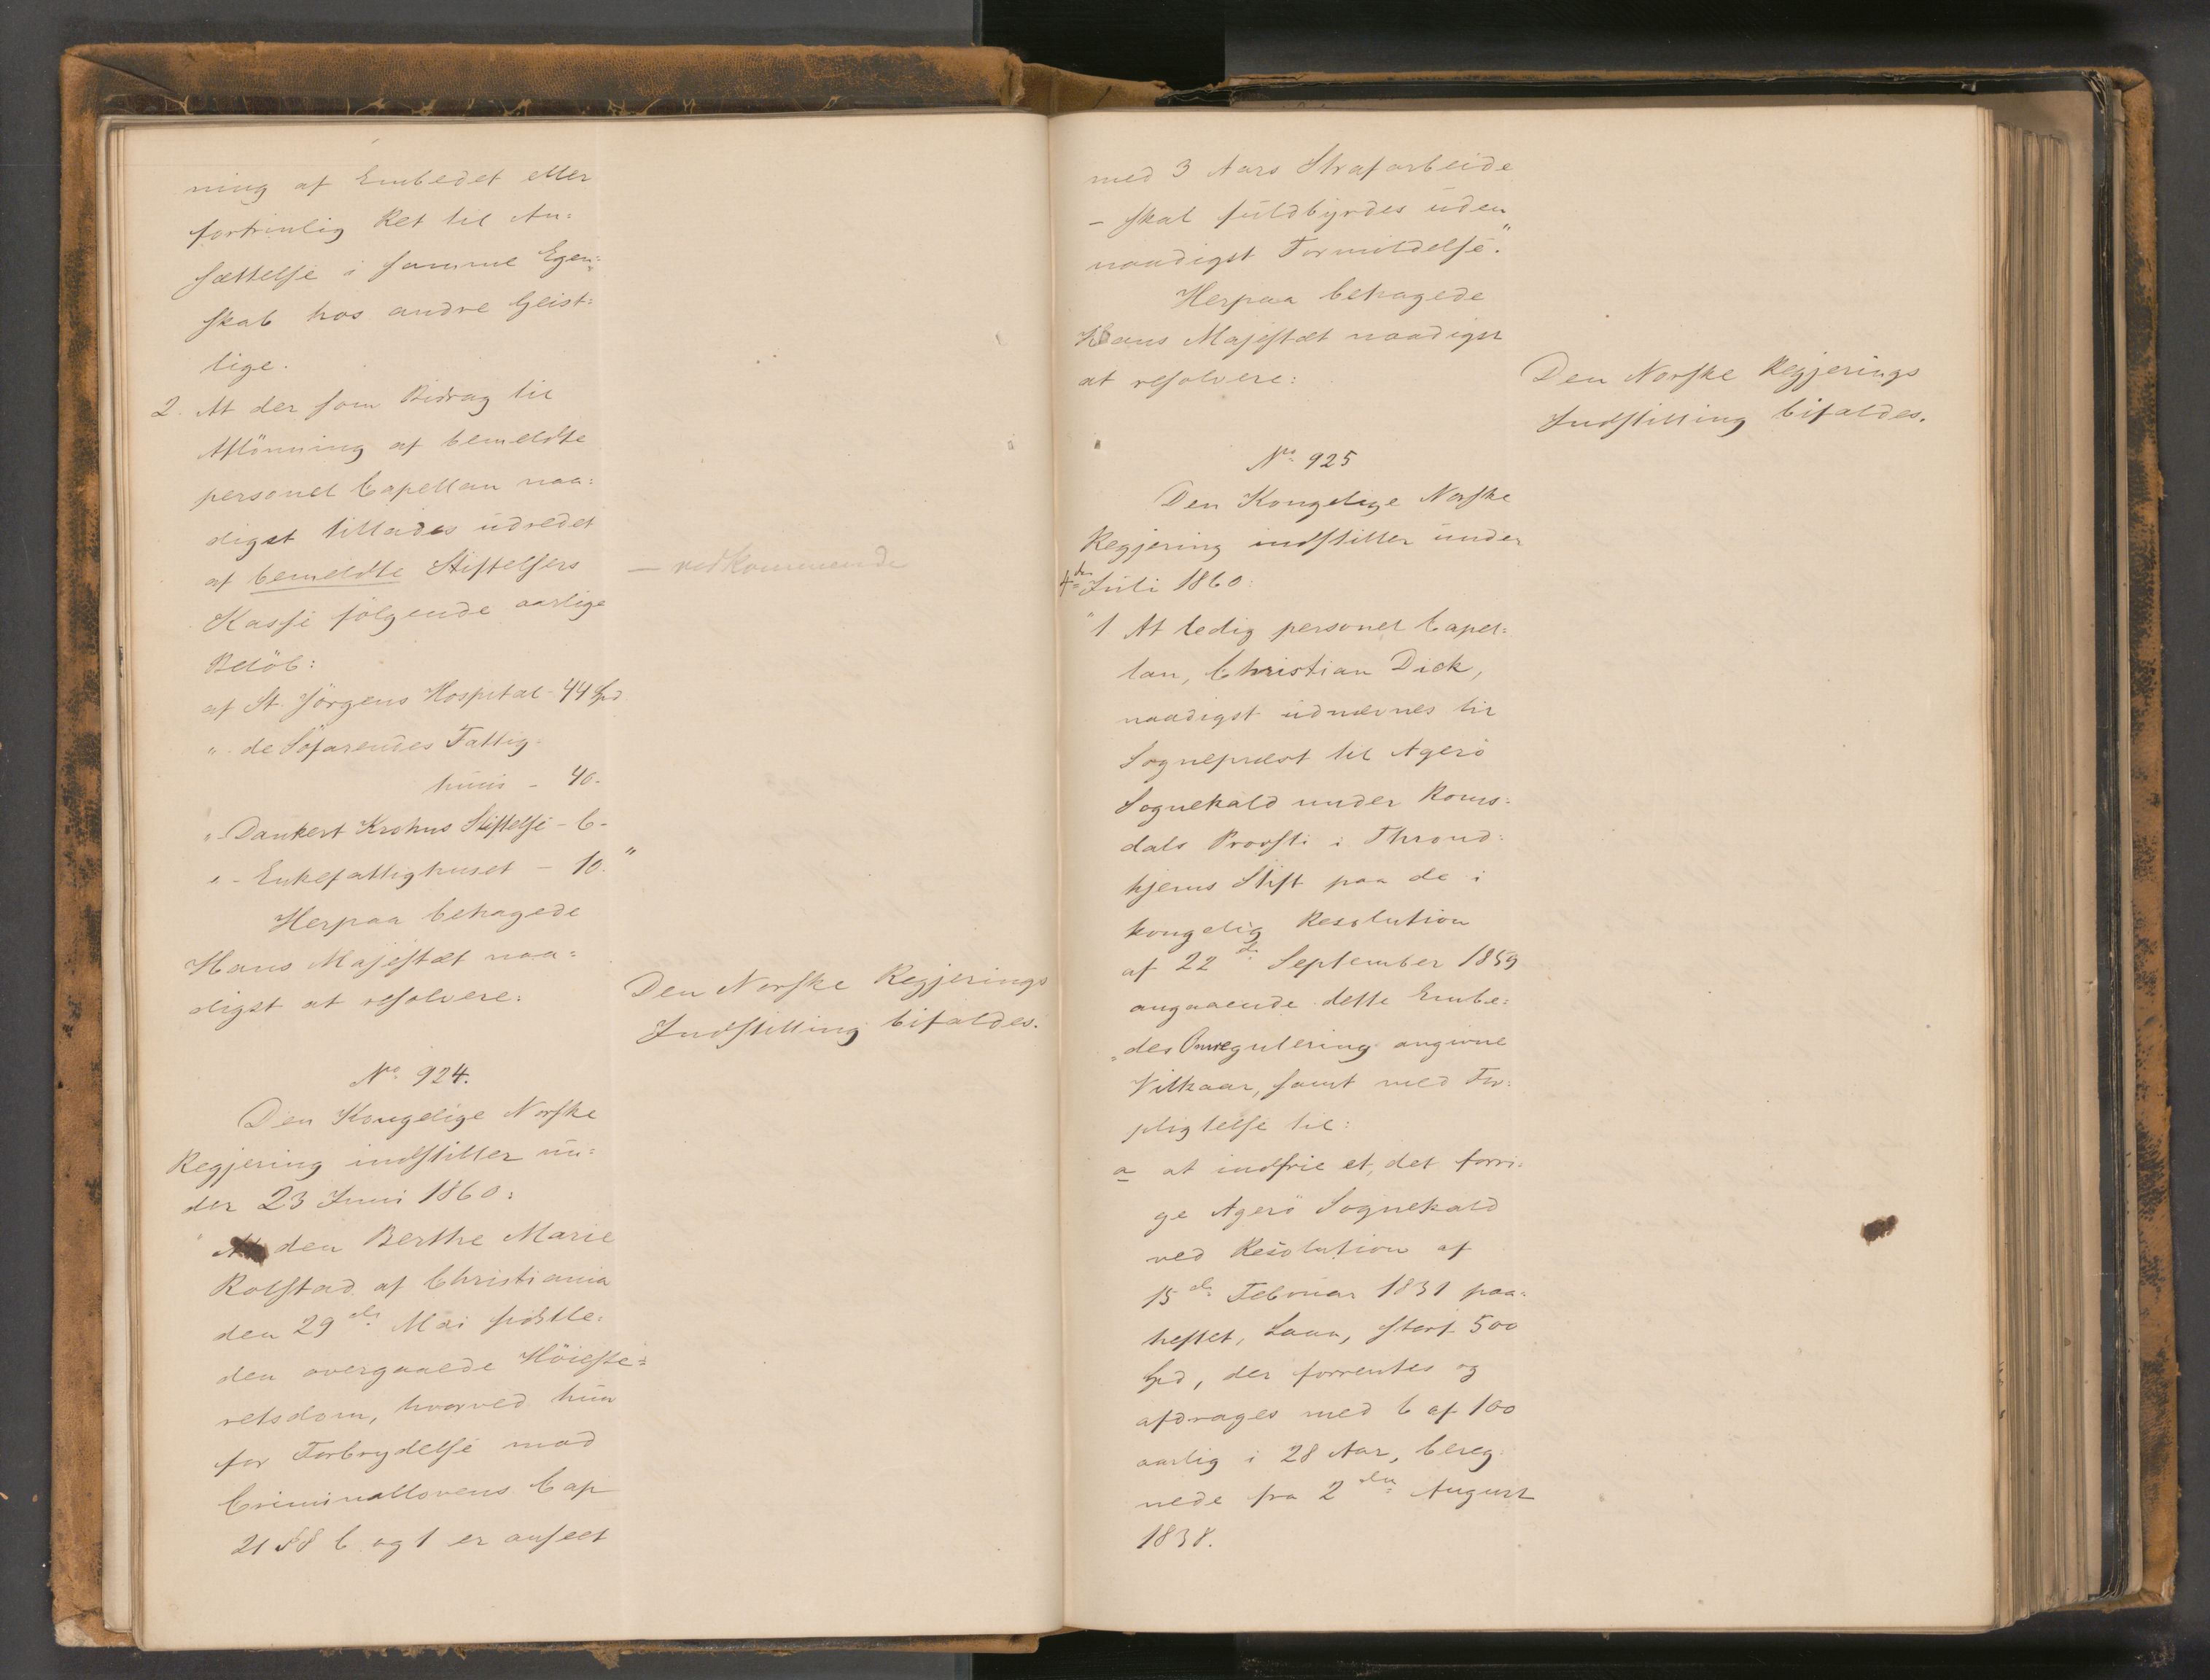 ning af Embedet eller
fortrinlig Ret til An=
sættelse i samme Egen=
skab hos andre Geist=
lige.
2. At der som Bidrag til
Aflönning af bemeldte
personel Capellan naa=
digst tillades udredet
af bemeldte Stiftelsers
— vedkommende
Kasse følgende aarlige
Belöb:
af St. Jörgens Hospital - 44 Spd
" - de Söfarendes Fattig=
huus - 40.
" - Dankert Krohns Stiftelse - 6 -
" - Enkefattighuset - 10."
Herpaa behagede
Hans Majestæt naa=
digst at resolvere:
Den Norske Regjerings
Indstilling bifaldes.
No. 924.
Den Kongelige Norske
Regjering indstiller un=
der 23 Juni 1860:
" At den Berthe Marie
Rolstad af Christiania
den 29de Mai sidstle=
den overgaaede Höieste=
retsdom, hvorved hun
for Forbrydelse mod
Criminallovens Cap
21 §§ 6 og 1 er anseet
med 3 Aars Strafarbeide
- skal fuldbyrdes uden
naadigst Formildelse."
Herpaa behagede
Hans Majestæt naadigst
at resolvere:
Den Norske Regjerings
Indstilling bifaldes.
No. 925
Den Kongelige Norske
Regjering indstiller under
4de Juli 1860:
"1 At ledig personel Capel=
lan, Christian Dick,
naadigst udnævnes til
Sognepræst til Agerö
Sognekald under Roms=
dals Provsti i Thrond=
hjems Stift paa de i
kongelig Resolution
af 22de September 1859
angaaende dette Embe=
des Omregulering angivne
Vilkaar, samt med For=
pligtelse til:
a at indfrie et, det forri=
ge Agerö Sognekald
ved Resolution af
15de Februar 1831 paa=
heftet, Laan, stort 500
Spd, der forrentes og
afdrages med 6 af 100
aarlig i 28 Aar, bereg=
nede fra 2den August
1838.